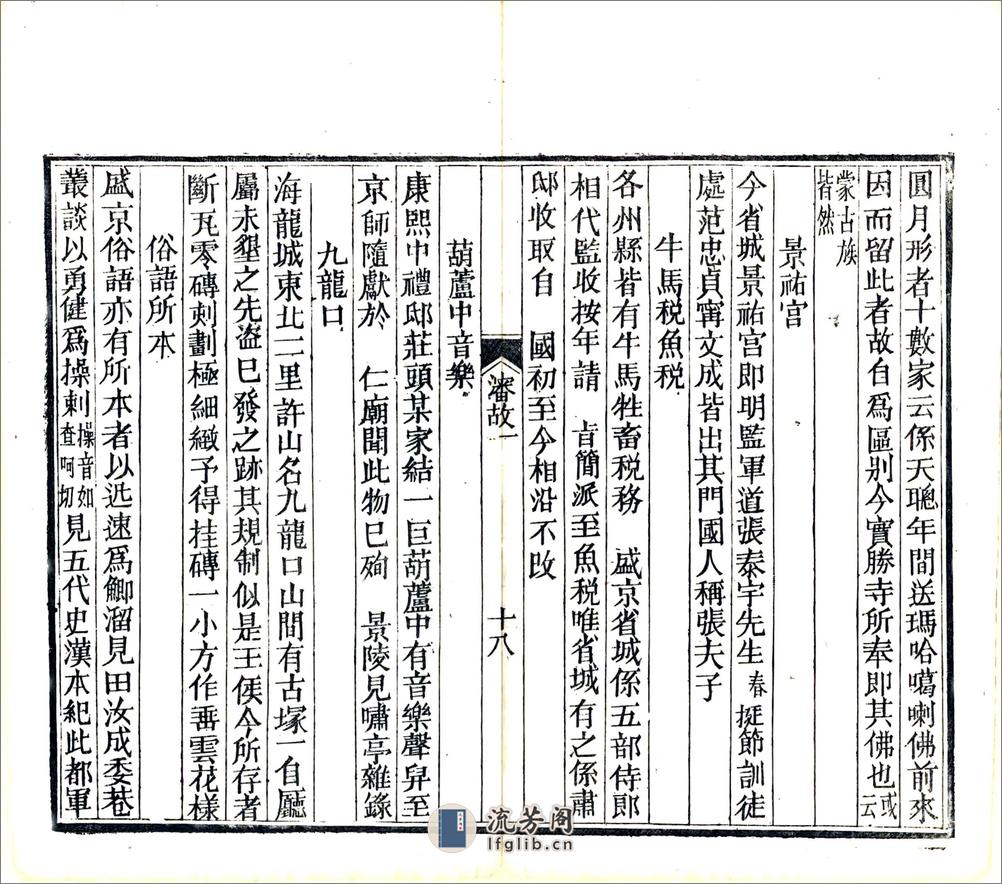 圓月形者十數家云係天聰年間送瑪哈噶喇佛前來
因而留此者故自爲區别今實勝寺所奉即其佛也或云
蒙古族皆然
景祐宫
今省城景祐宫即明監軍道張泰宇先生春挺節訓徒
處范忠貞甯文成皆出其門國人稱張夫子
牛馬税魚税
各州縣皆有牛馬牲畜税務 盛京省城係五部侍郎
相代監收按年請 旨簡派至魚税唯省城有之係肅
邸收取自 國初至今相沿不改
瀋故一
十八
葫蘆中音樂
康熙中禮邸莊頭某家結一巨葫蘆中有音樂聲舁至
京師隨獻於 仁廟聞此物已殉 景陵見嘯亭雜錄
九龍口
海龍城東北二里許山名九龍口山間有古塚一自廳
屬未墾之先盜已發之跡其規制似是王侯今所存者
斷瓦零磚刻劃極細緻予得挂磚一小方作垂雲花樣
俗語所本
盛京俗語亦有所本者以迅速爲鯽溜見田汝成委巷
叢談以勇健爲操剌操音如查呵切見五代史漢本紀此都軍
流芳阁
lfglib.cn